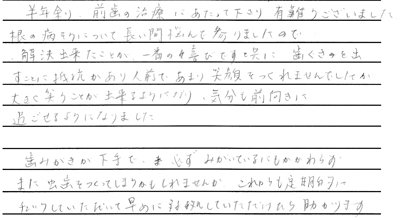 半年余り、前歯の治療にあたって下さり有難うございました
根の病そうについて長い間悩んで参りましたので
解決出来たことが一番の喜びですと共に歯ぐきを出
すことに抵抗があり人前であまり笑顔をつくれませんでしたが
大きく笑うことが出来るようになり、気分も前向きに
過ごせるようになりました
歯みがきが下手で、必ずみがいているにもかかわらず
また虫歯をつくってしまうかもしれませんが これからも定期的に
チェックしていただいて早めに対処していただけたら助かります